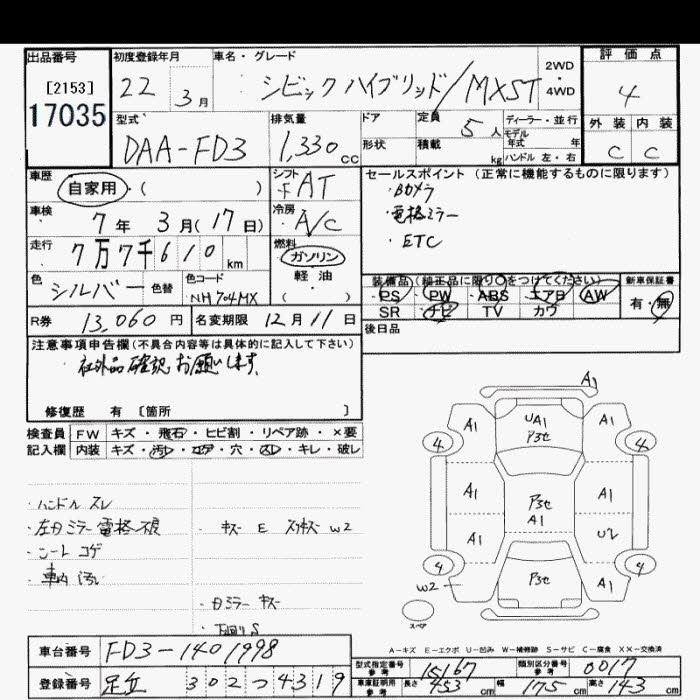 出品番号
[2153]
17035
初度登録年月
22 3月
車名・グレード
シビック ハイブリッド/MXST
2WD
・
4WD
評価点
4
外装 内装
C C
型式
DAA-FD3
排気量
1,330cc
ドア
形状
定員 5人
積載 kg
ディーラー・並行
モデル
年式 年
ハンドル 左・右
車歴
自家用・( )
シフト
F AT
車検
7年 3月(17日)
冷房
A/C
走行
7万7千610km
燃料
ガソリン
軽油
( )
色
シルバー
色替
色コード
NH704MX
R券 13,060円
名変期限 12月11日
セールスポイント(正常に機能するものに限ります)
・Bカメラ
・電格ミラー
・ETC
装備品(純正品に限り○をつけてください)
PS PW ABS エアB AW
SR ナビ TV カワ
新車保証書
有・無
後日品
注意事項申告欄(不具合内容等は具体的に記入して下さい)
・社外品確認お願いします。
修復歴 有 [箇所 ]
検査員
記入欄
FW キズ・飛石・ヒビ割・リペア跡・×要
内装 キズ・汚レ・コゲ・穴・スレ・キレ・破レ
・ハンドル スレ
・左右ミラー電格不良
・シート コゲ
・車内 汚レ
・キズ E スリキズ W2
・右ミラー キズ
・下回りS
A1
A1 UA1 A1
Pﾖセ
4 4
A1 Pﾖセ A1
A1
A1 U2
4 4
W2 Pﾖセ A1
スペア
A-キズ E-エクボ U-凹み W-補修跡 S-サビ C-腐食 XX-交換済
車台番号 FD3-1401998
登録番号 足立 302つ4319
型式指定番号
参考
15167
類別区分番号
参考
0017
車庫証明用
参考
長さ 453cm 幅 175cm 高さ 143cm